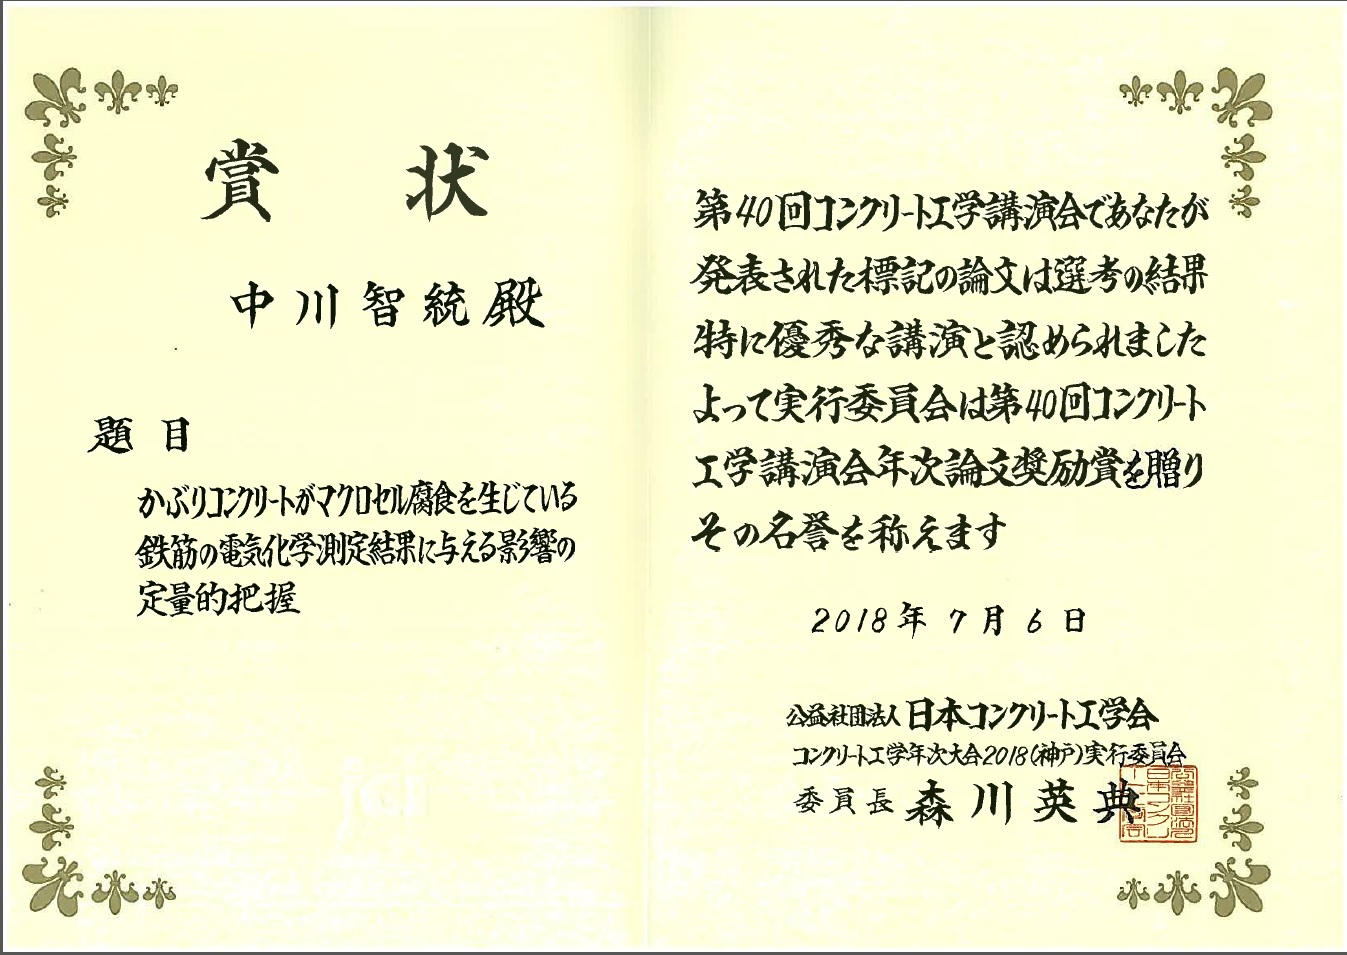 賞状
中川智統殿
題目
かぶりコンクリートがマクロセル腐食を生じている
鉄筋の電気化学測定結果に与える影響の
定量的把握
第40回コンクリート工学講演会であなたが
発表された標記の論文は選考の結果
特に優秀な講演と認められました
よって実行委員会は第40回コンクリート
工学講演会年次論文奨励賞を贈り
その名誉を称えます
2018年7月6日
公益社団法人日本コンクリート工学会
コンクリート工学年次大会2018(神戸)実行委員会
委員長 森川英典